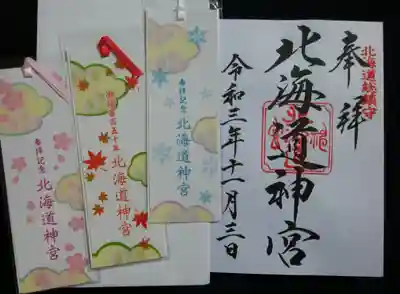 奉拝
北海道総鎮守
北海道神宮
令和三年十一月三日
参拝記念 北海道神宮
北海道神宮
参拝記念 北海道神宮